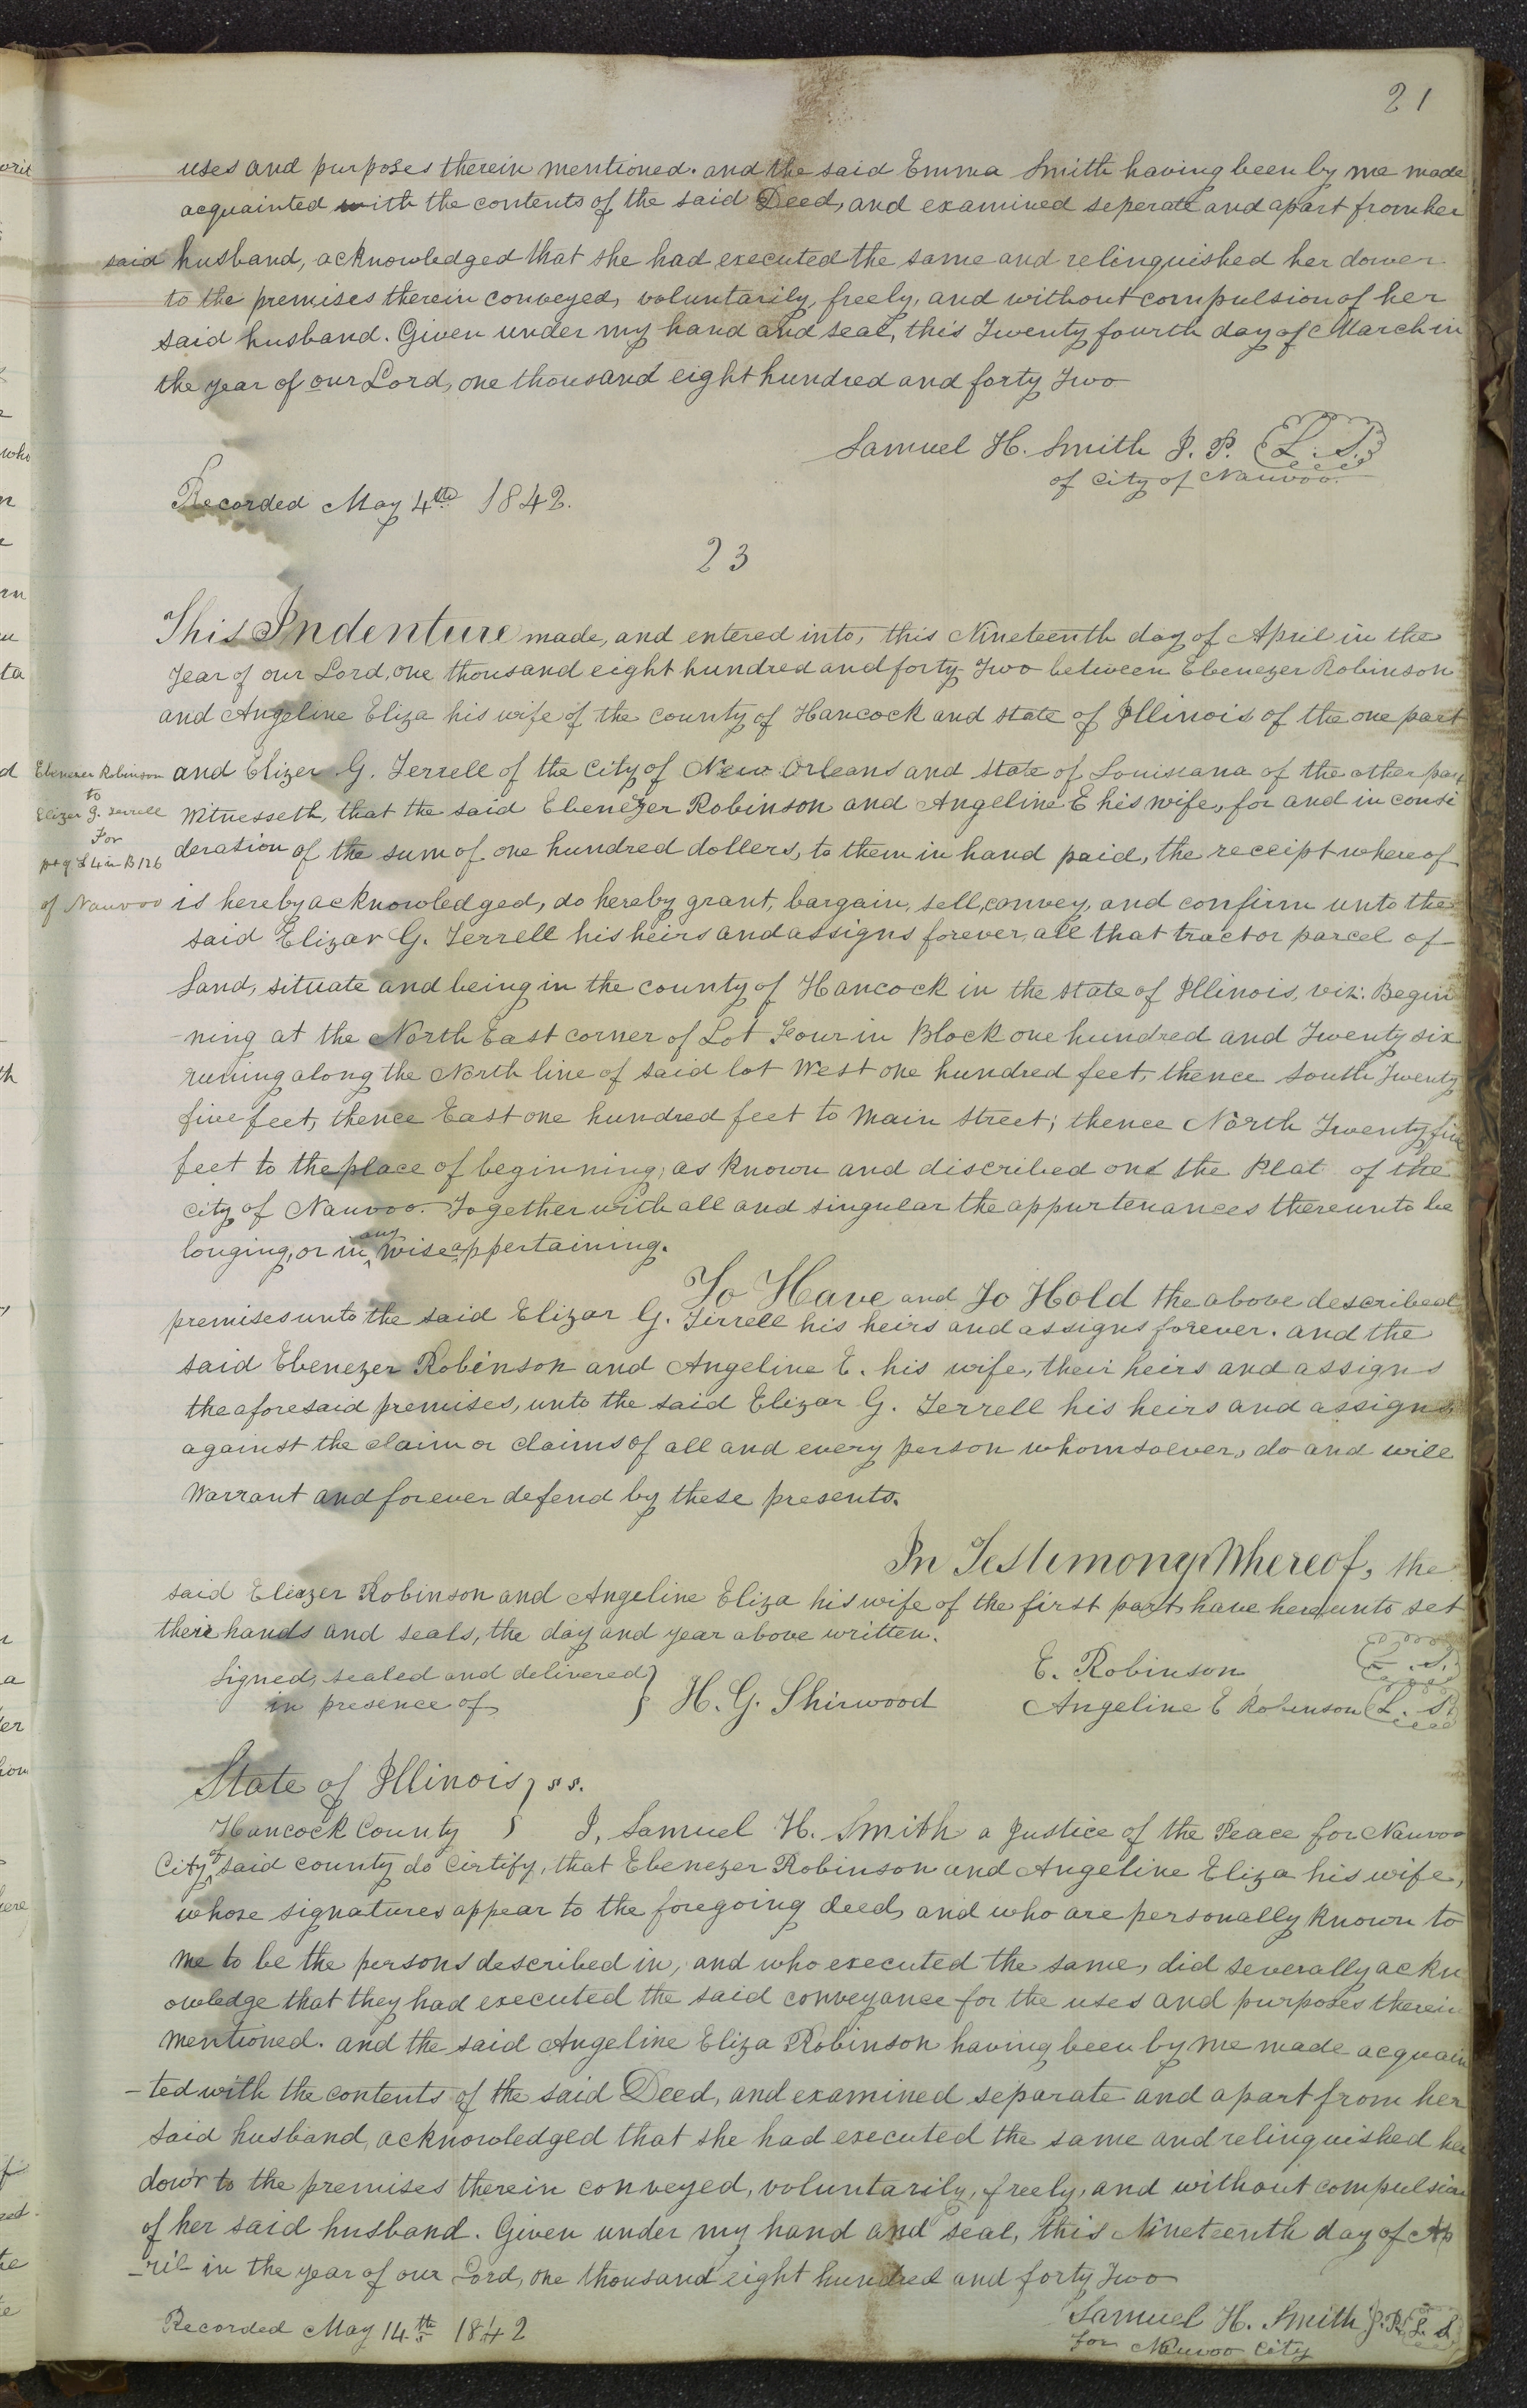 21
uses and purposes therein mentioned. and the said Emma Smith having been by me made
acquainted with the contents of the said Deed, and examined seperate and apart from her
said husband, acknowledged that she had executed the same and relinquished her dower
to the premises therein conveyed, voluntarily, freely, and without compulsion of her
said husband. Given under my hand and seal, this Twenty fourth day of March in
the year of our Lord, one thousand eight hundred and forty Two
Samuel H. Smith J. P. (L. S.)
of City of Nauvoo.
Recorded May 4th 1842.
23
This Indenture made, and entered into, this Nineteenth day of April in the
Year of our Lord, one thousand eight hundred and forty Two between Ebenezer Robinson
and Angeline Eliza his wife of the county of Hancock and state of Illinois of the one part
Ebenezer Robinson
to
Elizer G. Terrell
For
pt of L 4 in B 126
of Nauvoo
and Elizer G. Terrell of the City of New Orleans and state of Louisiana of the other part
Witnesseth, that the said Ebenezer Robinson and Angeline E his wife, for and in consi
deration of the sum of one hundred dollers, to them in hand paid, the receipt whereof
is hereby acknowledged, do hereby grant, bargain, sell, convey, and confirm unto the
said Elizar G. Terrell his heirs and assigns forever, all that tract or parcel of
Land, situate and being in the county of Hancock in the state of Illinois, viz: Begin
-ning at the North East corner of Lot Four in Block one hundred and Twenty six
runing along the North line of said lot West one hundred feet, thence South Twenty
five feet, thence East one hundred feet to Main Street; thence North Twenty five
feet to the place of beginning, as known and discribed on the Plat of the
city of Nauvoo. Together with all and singular the appurtenances thereunto be
longing, or in any wise appertaining.
To Have and To Hold the above described
premises unto the said Elizar G. Tirrell his heirs and assigns forever. and the
said Ebenezer Robinson and Angeline E. his wife, their heirs and assigns
the aforesaid premises, unto the said Elizar G. Terrell his heirs and assigns
against the claim or claims of all and every person whomsoever, do and will
Warrant and forever defend by these presents.
In Testimony Whereof, the
said Eliezer Robinson and Angeline Eliza his wife of the first part, have hereunto set
their hands and seals, the day and year above written.
Signed, sealed and delivered }
in presence of } H. G. Shirwood
E. Robinson (L. S.)
Angeline E Robinson (L. S.)
State of Illinois } ss.
Hancock County } I, Samuel H. Smith a Justice of the Peace for Nauvoo
City of said county do Certify, that Ebenezer Robinson and Angeline Eliza his wife,
whose signatures appear to the foregoing deed, and who are personally known to
me to be the persons described in, and who executed the same, did severally ackn
owledge that they had executed the said conveyance for the uses and purposes therein
mentioned. and the said Angeline Eliza Robinson having been by me made acquain
-ted with the contents of the said Deed, and examined separate and apart from her
said husband, acknowledged that she had executed the same and relinquished her
dow'r to the premises therein conveyed, voluntarily, freely, and without compulsion
of her said husband. Given under my hand and seal, this Nineteenth day of Ap
-ril in the year of our Lord, one thousand eight hundred and forty Two
Samuel H. Smith J. P. (L. S.)
for Nauvoo City
Recorded May 14th 1842